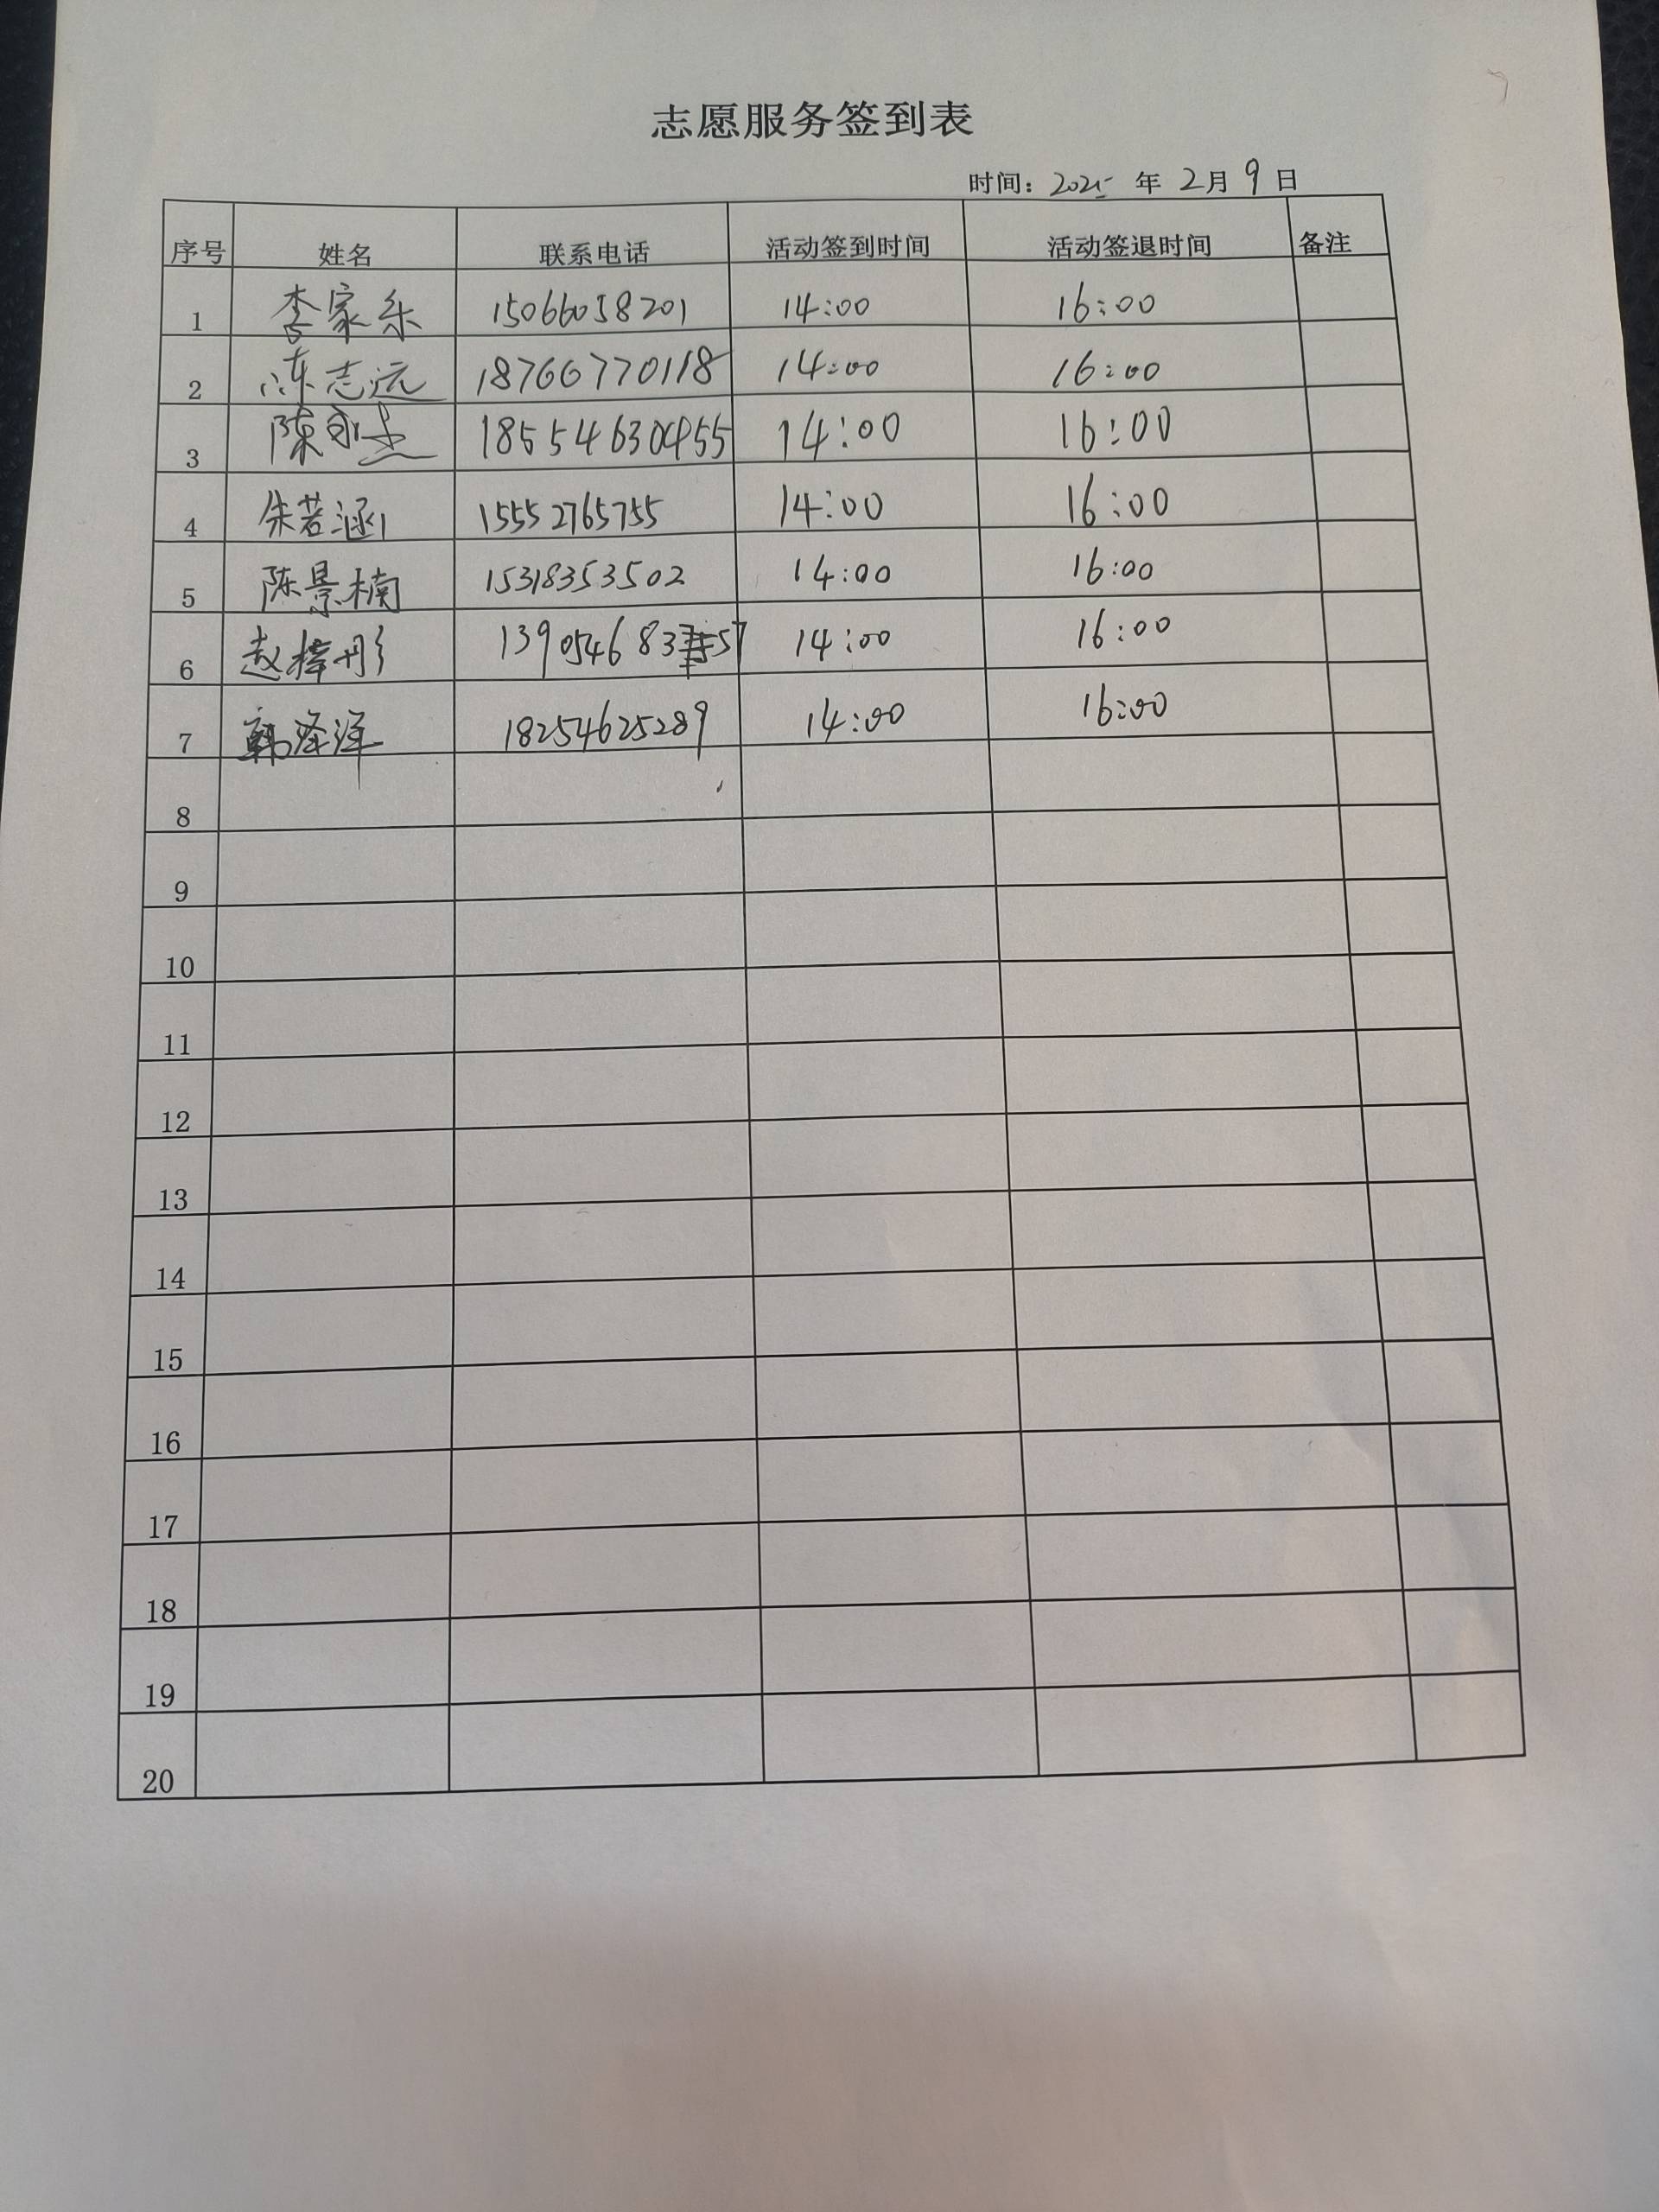 志愿服务签到表
时间：2025年2月9日
序号 姓名 联系电话 活动签到时间 活动签退时间 备注
1 李家乐 15066058201 14:00 16:00
2 陈志远 18766770118 14:00 16:00
3 陈 18554630455 14:00 16:00
4 朱若涵 15552765755 14:00 16:00
5 陈景楠 15318353502 14:00 16:00
6 赵梓彤 14:00 16:00
7 韩泽洋 18254625289 14:00 16:00
8
9
10
11
12
13
14
15
16
17
18
19
20